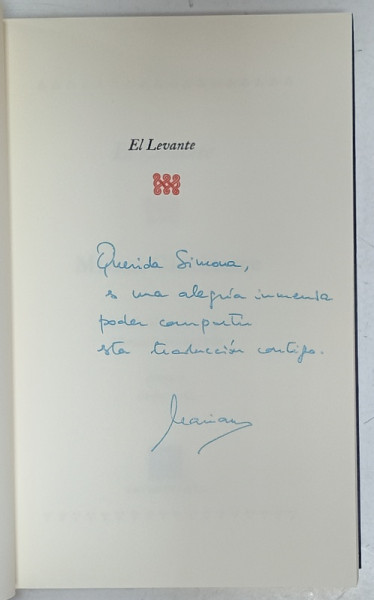 El Levante
Querida Simona,
es una alegría inmensa
poder compartir
esta traducción contigo.
Marian